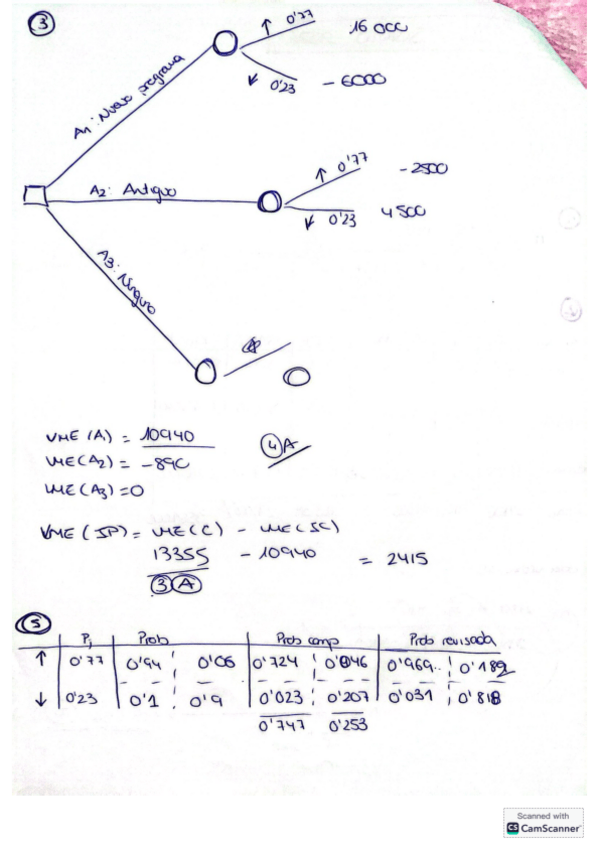 ③
↑ 0'77 16 000
↓ 0'23 - 6000
A1: Nuevo programa
↑ 0'77 - 2500
A2: Antiguo
↓ 0'23 4500
A3: Ninguno
VME (A1) = 10940
④A
VME (A2) = -890
VME (A3) = 0
VME (IP) = VME (C) - VME (SC)
13355 - 10940 = 2415
③Ⓐ
⑤
Pj Prob Prob comp Prob revisada
↑ 0'77 0'94 0'06 0'724 0'046 0'969.. 0'182
↓ 0'23 0'1 0'9 0'023 0'207 0'031 0'818
0'747 0'253
Scanned with
CS CamScanner